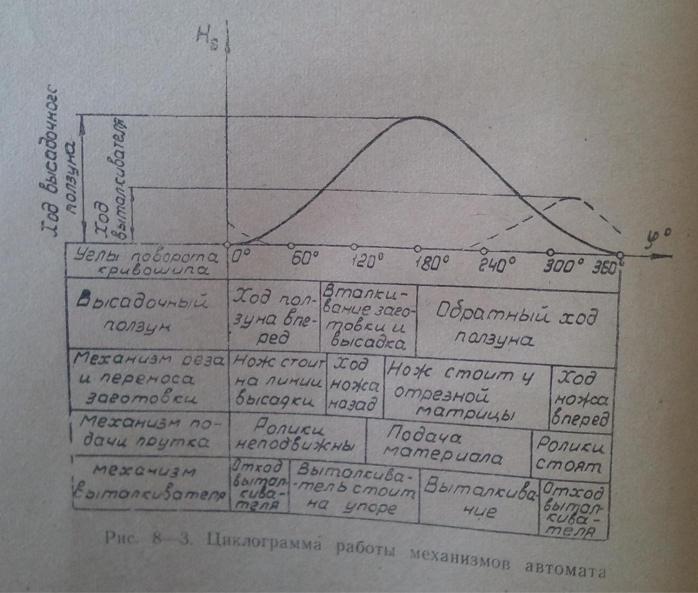 Hв
Ход высадочного
ползуна
Ход
выталкивателя
φ°
Углы поворота
кривошипа
0° 60° 120° 180° 240° 300° 360°
Высадочный
ползун
Ход пол-
зуна впе-
ред
Вталки-
вание заго-
товки и
высадка
Обратный ход
ползуна
Механизм реза
и переноса
заготовки
Нож стоит
на линии
высадки
Ход
ножа
назад
Нож стоит у
отрезной
матрицы
Ход
ножа
вперед
Механизм по-
дачи прутка
Ролики
неподвижны
Подача
материала
Ролики
стоят
механизм
выталкивателя
Отход
вытал-
кива-
теля
Выталкива-
-тель стоит
на упоре
Выталкива-
ние
Отход
вытал-
кива-
теля
Рис. 8—3. Циклограмма работы механизмов автомата